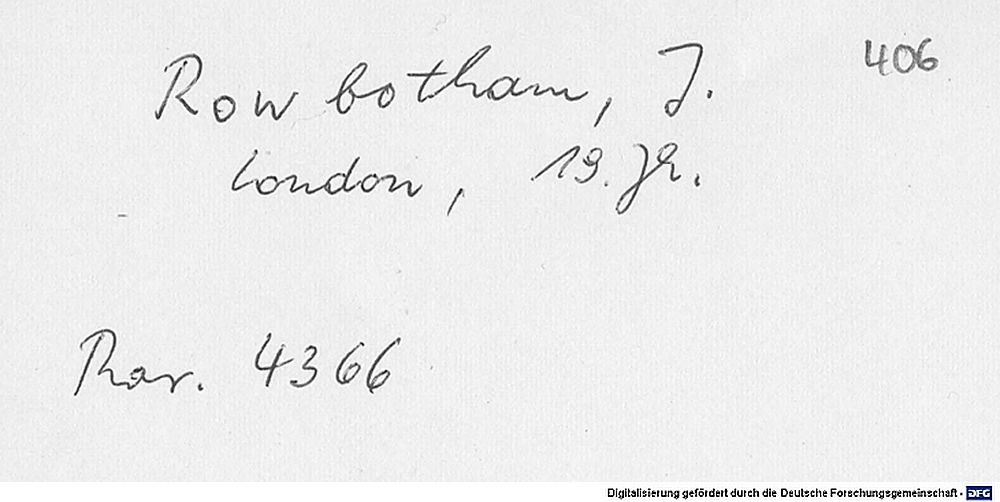 406
Rowbotham, J.
London, 19. Jh.
Rar. 4366
Digitalisierung gefördert durch die Deutsche Forschungsgemeinschaft - DFG